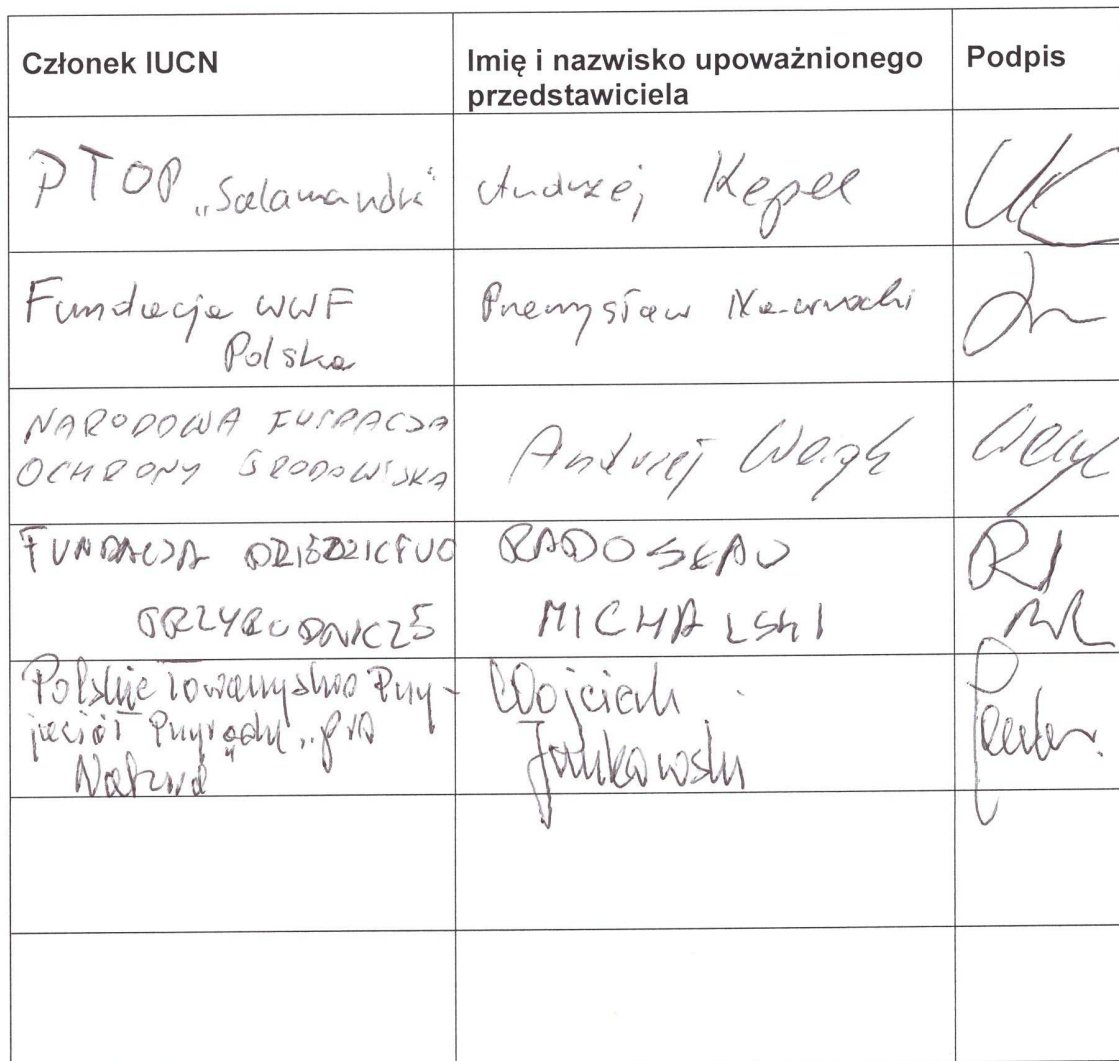 Członek IUCN
Imię i nazwisko upoważnionego
przedstawiciela
Podpis
PTOP „Salamandra"
Andrzej Kepel
Fundacja WWF
Polska
Przemysław Nawrocki
NARODOWA FUNDACJA
OCHRONY ŚRODOWISKA
Andrzej Weigle
FUNDACJA DZIEDZICTWO
PRZYRODNICZE
RADOSŁAW
MICHALSKI
Polskie Towarzystwo Przy-
jaciół Przyrody „pro
Natura"
Wojciech
Jankowski